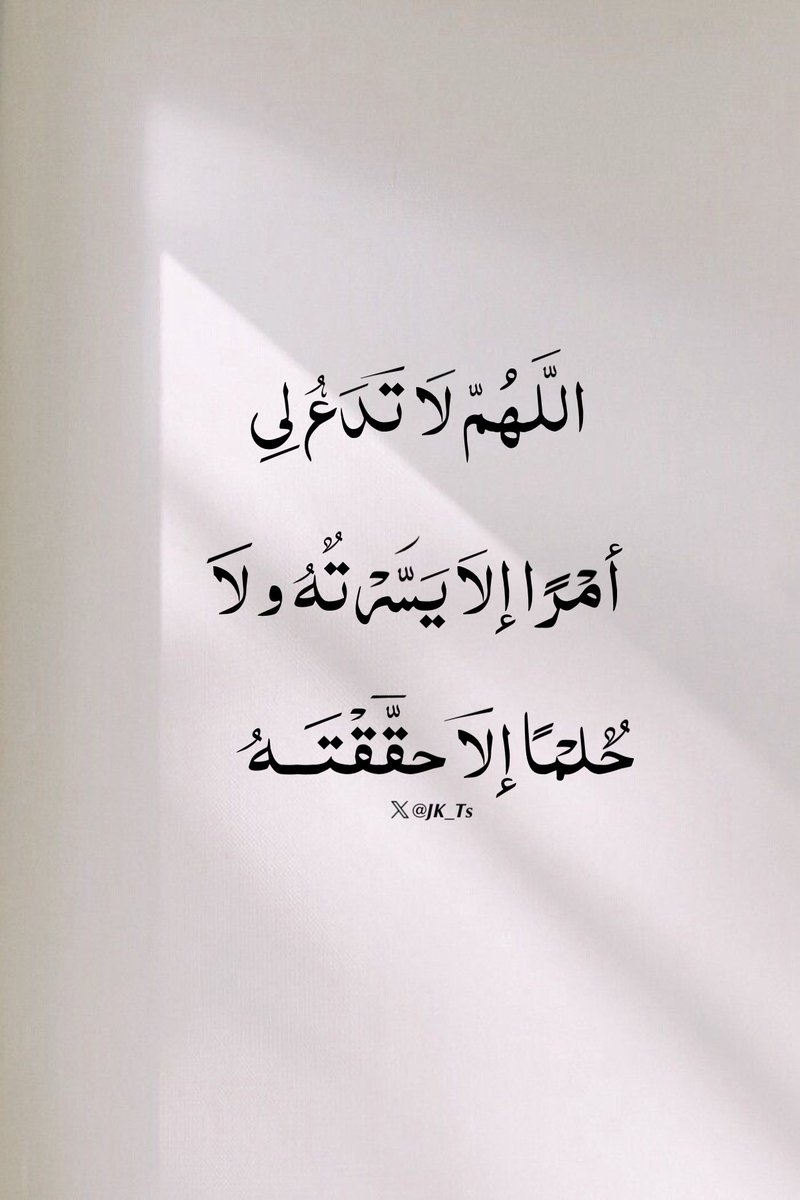 اللَّهُمّ لَا تَدَعُ لِي
أمْرًا إلَا يَسَّرْتُهُ ولَا
حُلمْاً إلَا حقَّقْتَـهُ
𝕏 @JK_Ts